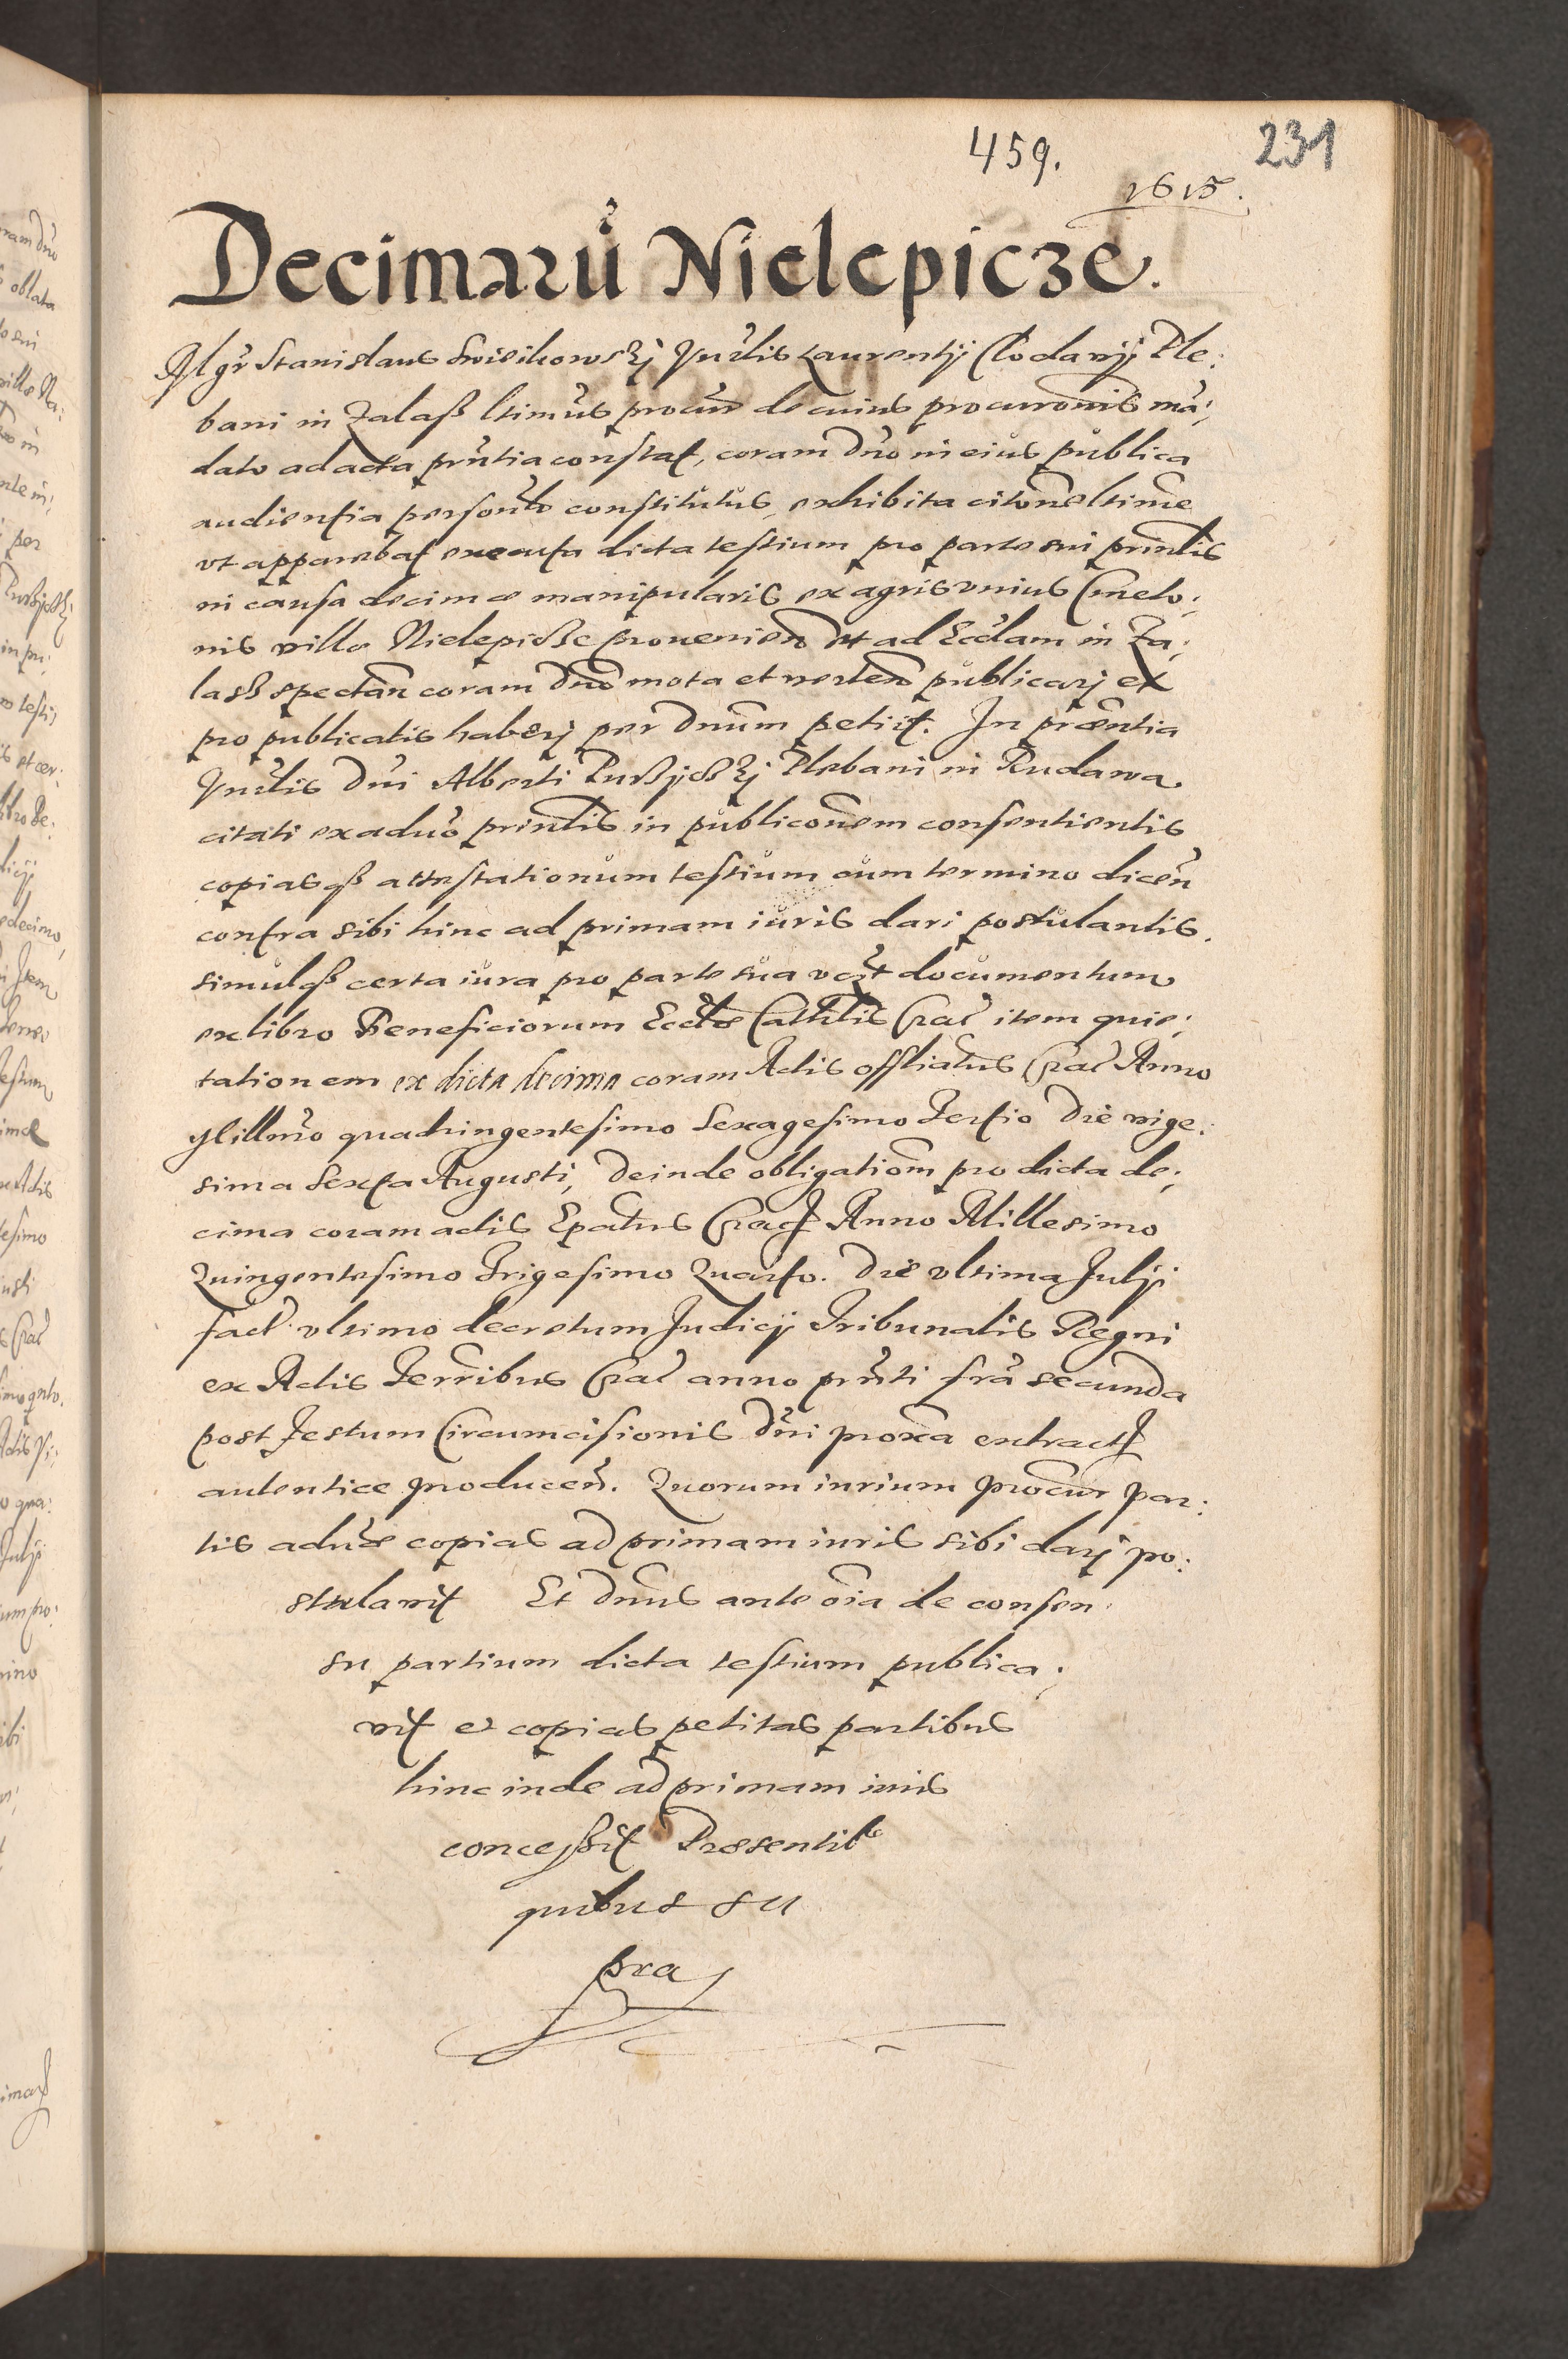 459.
231
1615.
Decimarũ Nielepicze.
Mgr̃ Stanislaus Swieikowskj Vnr̃lis Laurentij Clodawij Ple:
bani in Zalass ltimũs procũr de cuius procuronis mã:
dato ad acta prñtia constat, coram Dño in eius publica
audientia personlr̃ constitutus, exhibita citõne ltime
vt apparebat executa dicta testium pro parte sui prinlis
in causa decimæ manipularis ex agris vnius Cmeto:
nis villæ Nielepicze prouenien et ad Eccĺam in Za:
lass spectañ coram Dño mota et verteñ publicarj et
pro publicatis haberj per Dnum petiit. In præntia
Vnr̃lis Dñi Alberti Plebani in Rudawa
citati ex aduõ prinlis in publiconem consentientis
copiasqß attestationum testium cum termino diceñ
contra sibi hinc ad primam iuris dari postulantis.
simulqß certa iura pro parte sua vczt documentum
ex libro Beneficiorum Eccĺæ Cathlis Crac̃ item quie:
tationem ex dicta decima coram Actis offĺiatus Crac̃ Anno
Millmo quadringentesimo Sexagesimo Tertio Die vige:
sima Sexta Augusti, Deinde obligatiom̃ pro dicta de:
cima coram actis Ep̃atus Crac̃ Anno Millesimo
Quingentesimo Trigesimo Quarto. Die vltima Julij
fact̃. vltimo decretum Judicij Tribunalis Regni
ex Actis Terribus Crac̃ anno prñti fr̃a secunda
post Festum Circumcisionis Dñi proxa extract̃
autentice produceñ. Quorum iurium procur̃ par:
tis aduõe copias ad primam iuris sibi darj po:
stulavit Et Dnus ante oĩa de consen:
su partium dicta testium publica:
vit et copias petitas partibus
hinc inde ad primam iuris
concessit Præsentib9
quibus su
pra